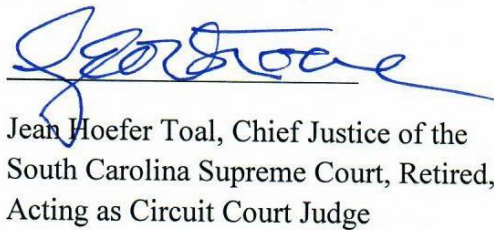 Jean Hoefer Toal, Chief Justice of the
South Carolina Supreme Court, Retired,
Acting as Circuit Court Judge